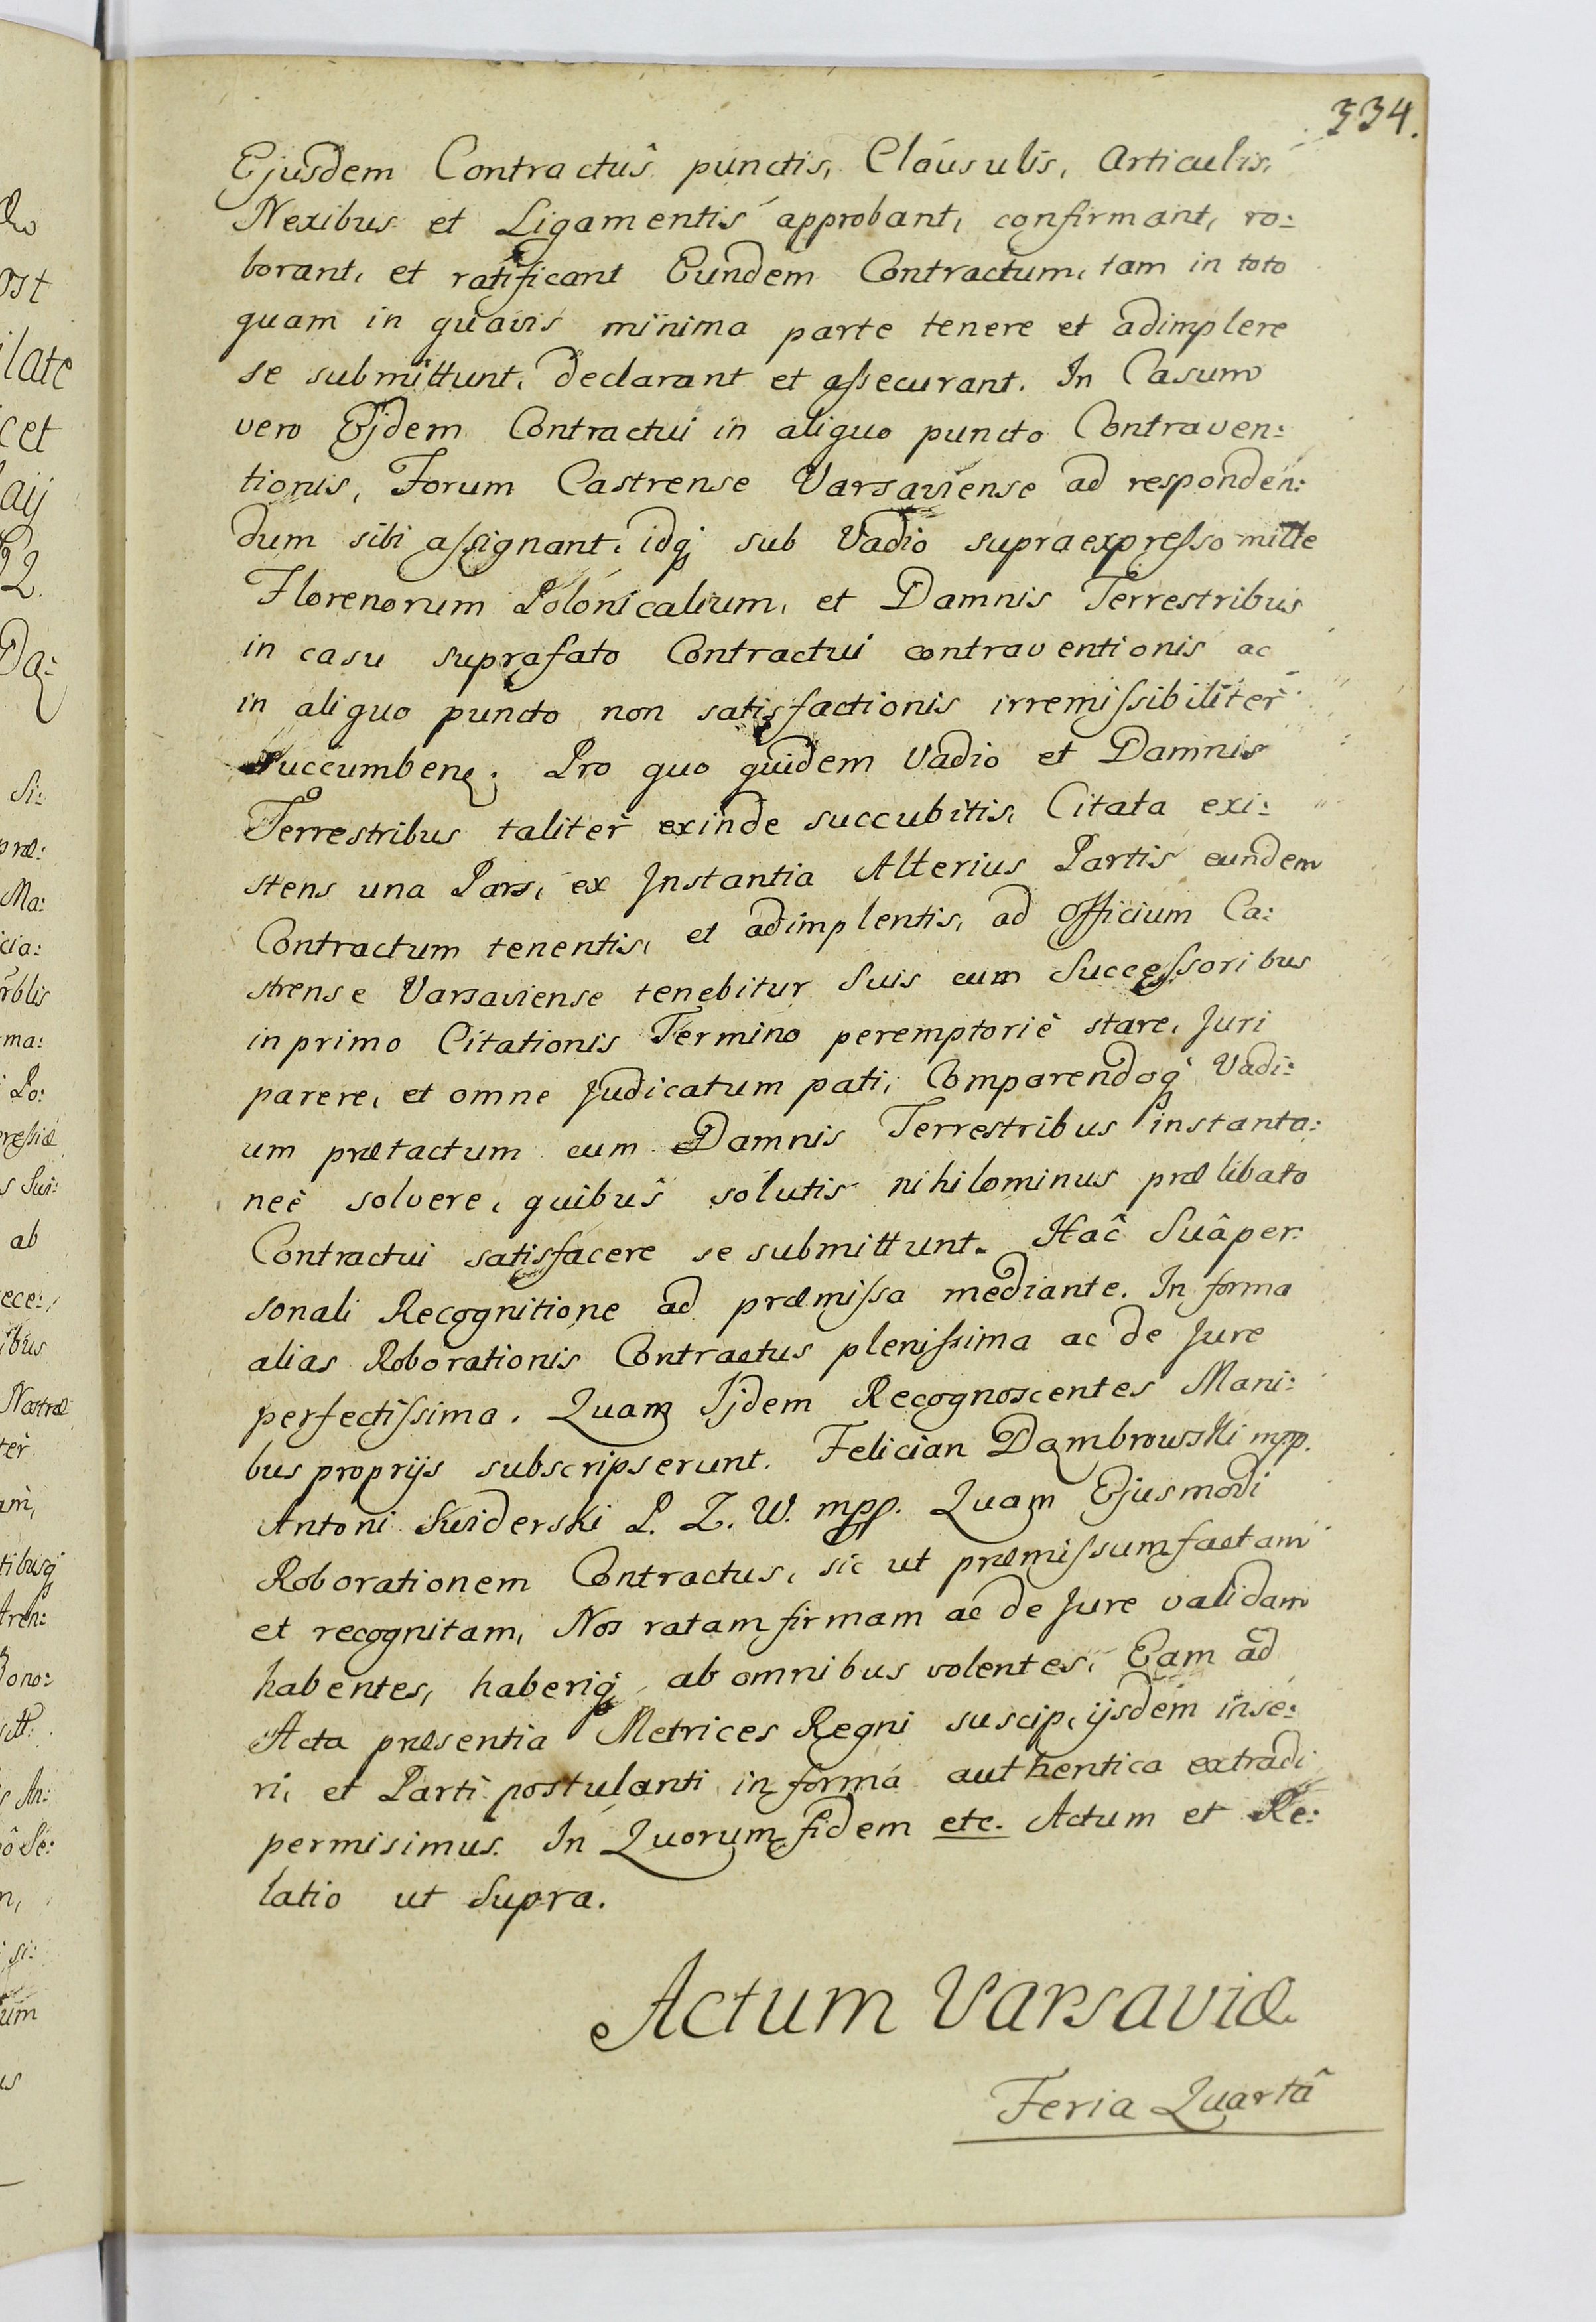 334.
Ejusdem Contractûs punctis, Clausulis, Articulis,
Nexibus et Ligamentis approbant, confirmant, ro:
borant, et ratificant Eundem Contractum, tam in toto
quam in quavis minima parte tenere et adimplere
se submittunt, declarant et assecurant. In Casum
vero Ejdem Contractui in aliquo puncto Contraven:
tionis, Forum Castrense Varsaviense ad responden:
dum sibi assignant, idq; sub Vadio supraexpresso mille
Florenorum Polonicalium, et Damnis Terrestribus
in casu suprafato Contractui contraventionis ac
in aliquo puncto non satisfactionis irremissibiliter
succumben. Pro quo quidem Vadio et Damnis
Terrestribus taliter exinde succubitis, Citata exi:
stens una Pars, ex Instantia Alterius Partis eundem
Contractum tenentis, et adimplentis, ad Officium Ca:
strense Varsaviense tenebitur Suis cum Successoribus
in primo Citationis Termino peremptoriè stare, Juri
parere, et omne Judicatum pati, Comparendoq; Vadi:
um prætactum cum Damnis Terrestribus instanta:
neè solvere, quibus solutis nihilominus prælibato
Contractui satisfacere se submittunt. Hac Suâ per:
sonali Recognitione ad præmissa mediante. In forma
alias Roborationis Contractus plenissima ac de Jure
perfectissima. Quam Ijdem Recognoscentes Mani:
bus proprijs subscripserunt. Felician Dąmbrowski mpp.
Antoni Swiderski P. Z. W. mpp. Quam Ejusmodi
Roborationem Contractus, sic ut præmissum factam
et recognitam, Nos ratam firmam ac de Jure validam
habentes, haberiq; ab omnibus volentes, Eam ad
Acta præsentia Metrices Regni suscipi, ijsdem inse:
ri, et Parti postulanti in forma authentica extradi
permisimus. In Quorum fidem etc. Actum et Re:
latio ut Supra.
Actum Varsaviæ
Feria Quartâ